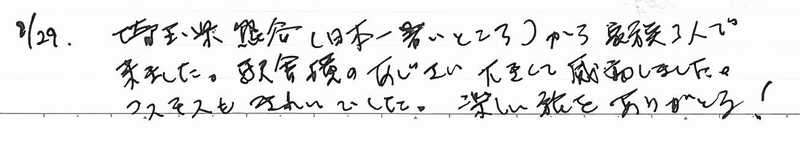 8/29. 埼玉県熊谷(日本一暑いところ)から家族3人で
来ました。駅舎横のあじさい 大きくて感動しました。
コスモスもきれいでした。楽しい旅をありがとう!